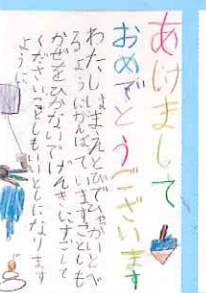 あけまして
おめでとうございます
わたしはまえとびでひゃっかいとべ
るようにがんばっています。ことしも
かぜをひかないで げんきにすごして
くださいことしもいいとしになります
ように。